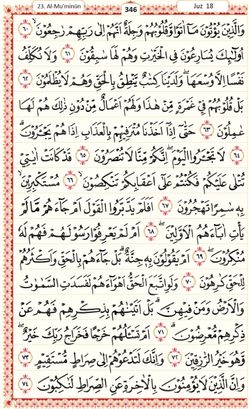 23. Al-Mu'minūn 346 Juz 18
وَالَّذِيْنَ يُؤْتُوْنَ مَآ اٰتَوْا وَّقُلُوْبُهُمْ وَجِلَةٌ اَنَّهُمْ اِلٰى رَبِّهِمْ رٰجِعُوْنَ ۙ ٦٠
اُولٰۤىِٕكَ يُسَارِعُوْنَ فِى الْخَيْرٰتِ وَهُمْ لَهَا سٰبِقُوْنَ ٦١ وَلَا نُكَلِّفُ
نَفْسًا اِلَّا وُسْعَهَا وَلَدَيْنَا كِتٰبٌ يَّنْطِقُ بِالْحَقِّ وَهُمْ لَا يُظْلَمُوْنَ ٦٢
بَلْ قُلُوْبُهُمْ فِيْ غَمْرَةٍ مِّنْ هٰذَا وَلَهُمْ اَعْمَالٌ مِّنْ دُوْنِ ذٰلِكَ هُمْ لَهَا
عٰمِلُوْنَ ٦٣ حَتّٰىٓ اِذَآ اَخَذْنَا مُتْرَفِيْهِمْ بِالْعَذَابِ اِذَا هُمْ يَجْـَٔرُوْنَ ۗ ٦٤
لَا تَجْـَٔرُوا الْيَوْمَ ۖ اِنَّكُمْ مِّنَّا لَا تُنْصَرُوْنَ ٦٥ قَدْ كَانَتْ اٰيٰتِيْ
تُتْلٰى عَلَيْكُمْ فَكُنْتُمْ عَلٰٓى اَعْقَابِكُمْ تَنْكِصُوْنَ ۙ ٦٦ مُسْتَكْبِرِيْنَ ۖ
بِهٖ سٰمِرًا تَهْجُرُوْنَ ٦٧ اَفَلَمْ يَدَّبَّرُوا الْقَوْلَ اَمْ جَاۤءَهُمْ مَّا لَمْ
يَأْتِ اٰبَاۤءَهُمُ الْاَوَّلِيْنَ ۖ ٦٨ اَمْ لَمْ يَعْرِفُوْا رَسُوْلَهُمْ فَهُمْ لَهٗ
مُنْكِرُوْنَ ۖ ٦٩ اَمْ يَقُوْلُوْنَ بِهٖ جِنَّةٌ ۗ بَلْ جَاۤءَهُمْ بِالْحَقِّ وَاَكْثَرُهُمْ
لِلْحَقِّ كٰرِهُوْنَ ٧٠ وَلَوِ اتَّبَعَ الْحَقُّ اَهْوَاۤءَهُمْ لَفَسَدَتِ السَّمٰوٰتُ
وَالْاَرْضُ وَمَنْ فِيْهِنَّ ۗ بَلْ اَتَيْنٰهُمْ بِذِكْرِهِمْ فَهُمْ عَنْ
ذِكْرِهِمْ مُّعْرِضُوْنَ ۗ ٧١ اَمْ تَسْـَٔلُهُمْ خَرْجًا فَخَرَاجُ رَبِّكَ خَيْرٌ ۖ
وَّهُوَ خَيْرُ الرّٰزِقِيْنَ ٧٢ وَاِنَّكَ لَتَدْعُوْهُمْ اِلٰى صِرَاطٍ مُّسْتَقِيْمٍ ٧٣
وَاِنَّ الَّذِيْنَ لَا يُؤْمِنُوْنَ بِالْاٰخِرَةِ عَنِ الصِّرَاطِ لَنٰكِبُوْنَ ٧٤